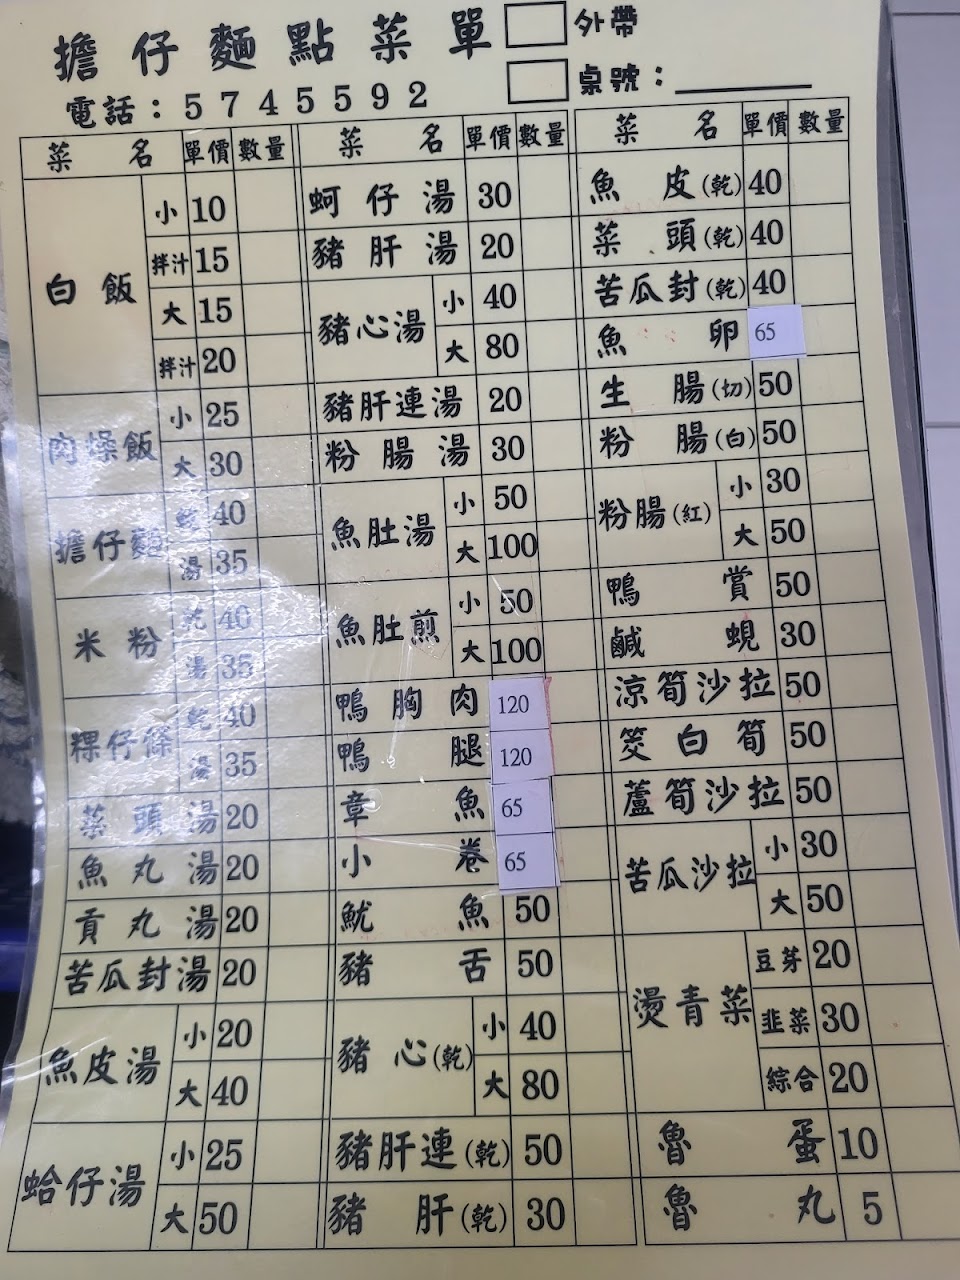 擔仔麵點菜單 □外帶
電話：5745592 □桌號：
菜名 單價 數量
白飯 小 10
拌汁 15
大 15
拌汁 20
肉燥飯 小 25
大 30
擔仔麵 乾 40
湯 35
米粉 乾 40
湯 35
粿仔條 乾 40
湯 35
菜頭湯 20
魚丸湯 20
貢丸湯 20
苦瓜封湯 20
魚皮湯 小 20
大 40
蛤仔湯 小 25
大 50
菜名 單價 數量
蚵仔湯 30
豬肝湯 20
豬心湯 小 40
大 80
豬肝連湯 20
粉腸湯 30
魚肚湯 小 50
大 100
魚肚煎 小 50
大 100
鴨胸肉 120
鴨腿 120
章魚 65
小卷 65
魷魚 50
豬舌 50
豬心(乾) 小 40
大 80
豬肝連(乾) 50
豬肝(乾) 30
菜名 單價 數量
魚皮(乾) 40
菜頭(乾) 40
苦瓜封(乾) 40
魚卵 65
生腸(切) 50
粉腸(白) 50
粉腸(紅) 小 30
大 50
鴨賞 50
鹹蜆 30
涼筍沙拉 50
筊白筍 50
蘆筍沙拉 50
苦瓜沙拉 小 30
大 50
燙青菜 豆芽 20
韭菜 30
綜合 20
魯蛋 10
魯丸 5